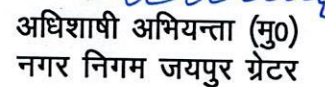 अधिशाषी अभियन्ता (मु0)
नगर निगम जयपुर ग्रेटर